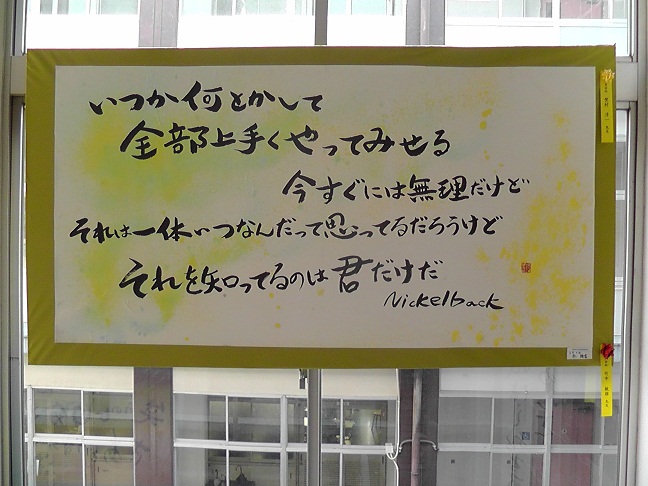 いつか何とかして
全部上手くやってみせる
今すぐには無理だけど
それは一体いつなんだって思ってるだろうけど
それを知ってるのは君だけだ
Nickelback